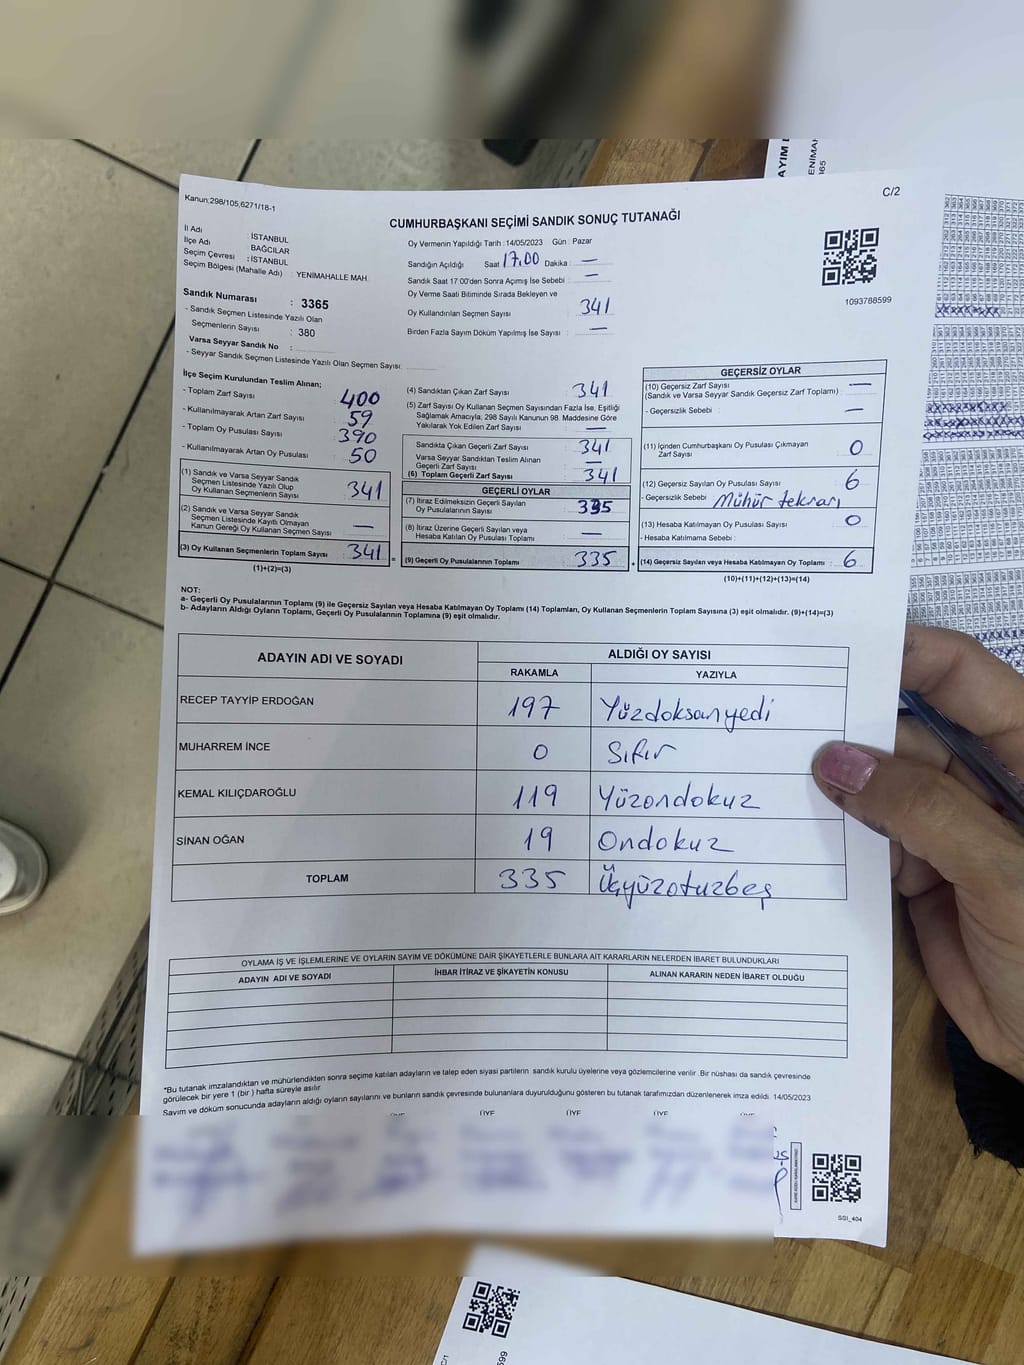 C/2
Kanun:298/105,6271/18-1
CUMHURBAŞKANI SEÇİMİ SANDIK SONUÇ TUTANAĞI
İl Adı : İSTANBUL
İlçe Adı : BAĞCILAR
Seçim Çevresi : İSTANBUL
Seçim Bölgesi (Mahalle Adı) : YENİMAHALLE MAH.
Sandık Numarası : 3365
- Sandık Seçmen Listesinde Yazılı Olan
Seçmenlerin Sayısı : 380
Varsa Seyyar Sandık No :
- Seyyar Sandık Seçmen Listesinde Yazılı Olan Seçmen Sayısı:
Oy Vermenin Yapıldığı Tarih : 14/05/2023 Gün : Pazar
Sandığın Açıldığı Saat 17.00 Dakika : —
Sandık Saat 17:00'den Sonra Açımış İse Sebebi : —
Oy Verme Saati Bitiminde Sırada Bekleyen ve
Oy Kullandırılan Seçmen Sayısı : 341
Birden Fazla Sayım Döküm Yapılmış İse Sayısı : —
1093788599
İlçe Seçim Kurulundan Teslim Alınan;
- Toplam Zarf Sayısı 400
- Kullanılmayarak Artan Zarf Sayısı 59
- Toplam Oy Pusulası Sayısı 390
- Kullanılmayarak Artan Oy Pusulası 50
(1) Sandık ve Varsa Seyyar Sandık
Seçmen Listesinde Yazılı Olup
Oy Kullanan Seçmenlerin Sayısı 341
(2) Sandık ve Varsa Seyyar Sandık
Seçmen Listesinde Kayıtlı Olmayan
Kanun Gereği Oy Kullanan Seçmen Sayısı —
(3) Oy Kullanan Seçmenlerin Toplam Sayısı 341 =
(1)+(2)=(3)
(4) Sandıktan Çıkan Zarf Sayısı : 341
(5) Zarf Sayısı Oy Kullanan Seçmen Sayısından Fazla İse, Eşitliği
Sağlamak Amacıyla, 298 Sayılı Kanunun 98. Maddesine Göre
Yakılarak Yok Edilen Zarf Sayısı : —
Sandıkta Çıkan Geçerli Zarf Sayısı : 341
Varsa Seyyar Sandıktan Teslim Alınan
Geçerli Zarf Sayısı : —
(6) Toplam Geçerli Zarf Sayısı : 341
GEÇERLİ OYLAR
(7) İtiraz Edilmeksizin Geçerli Sayılan
Oy Pusulalarının Sayısı : 335
(8) İtiraz Üzerine Geçerli Sayılan veya
Hesaba Katılan Oy Pusulası Toplamı : —
(9) Geçerli Oy Pusulalarının Toplamı : 335 +
GEÇERSİZ OYLAR
(10) Geçersiz Zarf Sayısı : —
(Sandık ve Varsa Seyyar Sandık Geçersiz Zarf Toplamı)
- Geçersizlik Sebebi : —
(11) İçinden Cumhurbaşkanı Oy Pusulası Çıkmayan
Zarf Sayısı : 0
(12) Geçersiz Sayılan Oy Pusulası Sayısı : 6
- Geçersizlik Sebebi : Mühür tekrarı
(13) Hesaba Katılmayan Oy Pusulası Sayısı : 0
- Hesaba Katılmama Sebebi :
(14) Geçersiz Sayılan veya Hesaba Katılmayan Oy Toplamı : 6
(10)+(11)+(12)+(13)=(14)
NOT:
a- Geçerli Oy Pusulalarının Toplamı (9) ile Geçersiz Sayılan veya Hesaba Katılmayan Oy Toplamı (14) Toplamları, Oy Kullanan Seçmenlerin Toplam Sayısına (3) eşit olmalıdır. (9)+(14)=(3)
b- Adayların Aldığı Oyların Toplamı, Geçerli Oy Pusulalarının Toplamına (9) eşit olmalıdır.
ADAYIN ADI VE SOYADI ALDIĞI OY SAYISI
RAKAMLA YAZIYLA
RECEP TAYYİP ERDOĞAN 197 Yüzdoksanyedi
MUHARREM İNCE 0 Sıfır
KEMAL KILIÇDAROĞLU 119 Yüzondokuz
SİNAN OĞAN 19 Ondokuz
TOPLAM 335 Üçyüzotuzbeş
OYLAMA İŞ VE İŞLEMLERİNE VE OYLARIN SAYIM VE DÖKÜMÜNE DAİR ŞİKAYETLERLE BUNLARA AİT KARARLARIN NELERDEN İBARET BULUNDUKLARI
ADAYIN ADI VE SOYADI İHBAR İTİRAZ VE ŞİKAYETİN KONUSU ALINAN KARARIN NEDEN İBARET OLDUĞU
*Bu tutanak imzalandıktan ve mühürlendikten sonra seçime katılan adayların ve talep eden siyasi partilerin sandık kurulu üyelerine veya gözlemcilerine verilir. Bir nüshası da sandık çevresinde
görülecek bir yere 1 (bir) hafta süreyle asılır.
Sayım ve döküm sonucunda adayların aldığı oyların sayılarını ve bunların sandık çevresinde bulunanlara duyurulduğunu gösteren bu tutanak tarafımızdan düzenlenerek imza edildi. 14/05/2023
ÜYE ÜYE ÜYE ÜYE ÜYE ÜYE
SSI_404
C/1